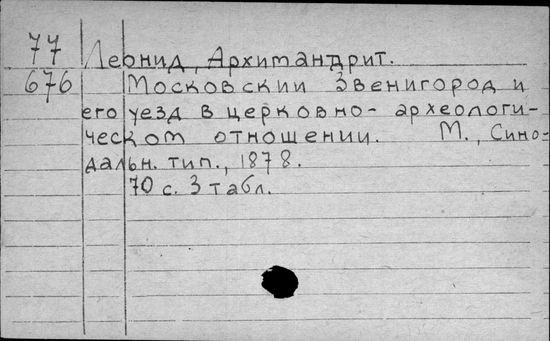 77 Леонид, Архимандрит.
676 Московскии Звенигород и
его уезд в церковно- археологи-
ческом отношении. М., Сино-
дальн. тип., 1878.
70 с. 3 табл.